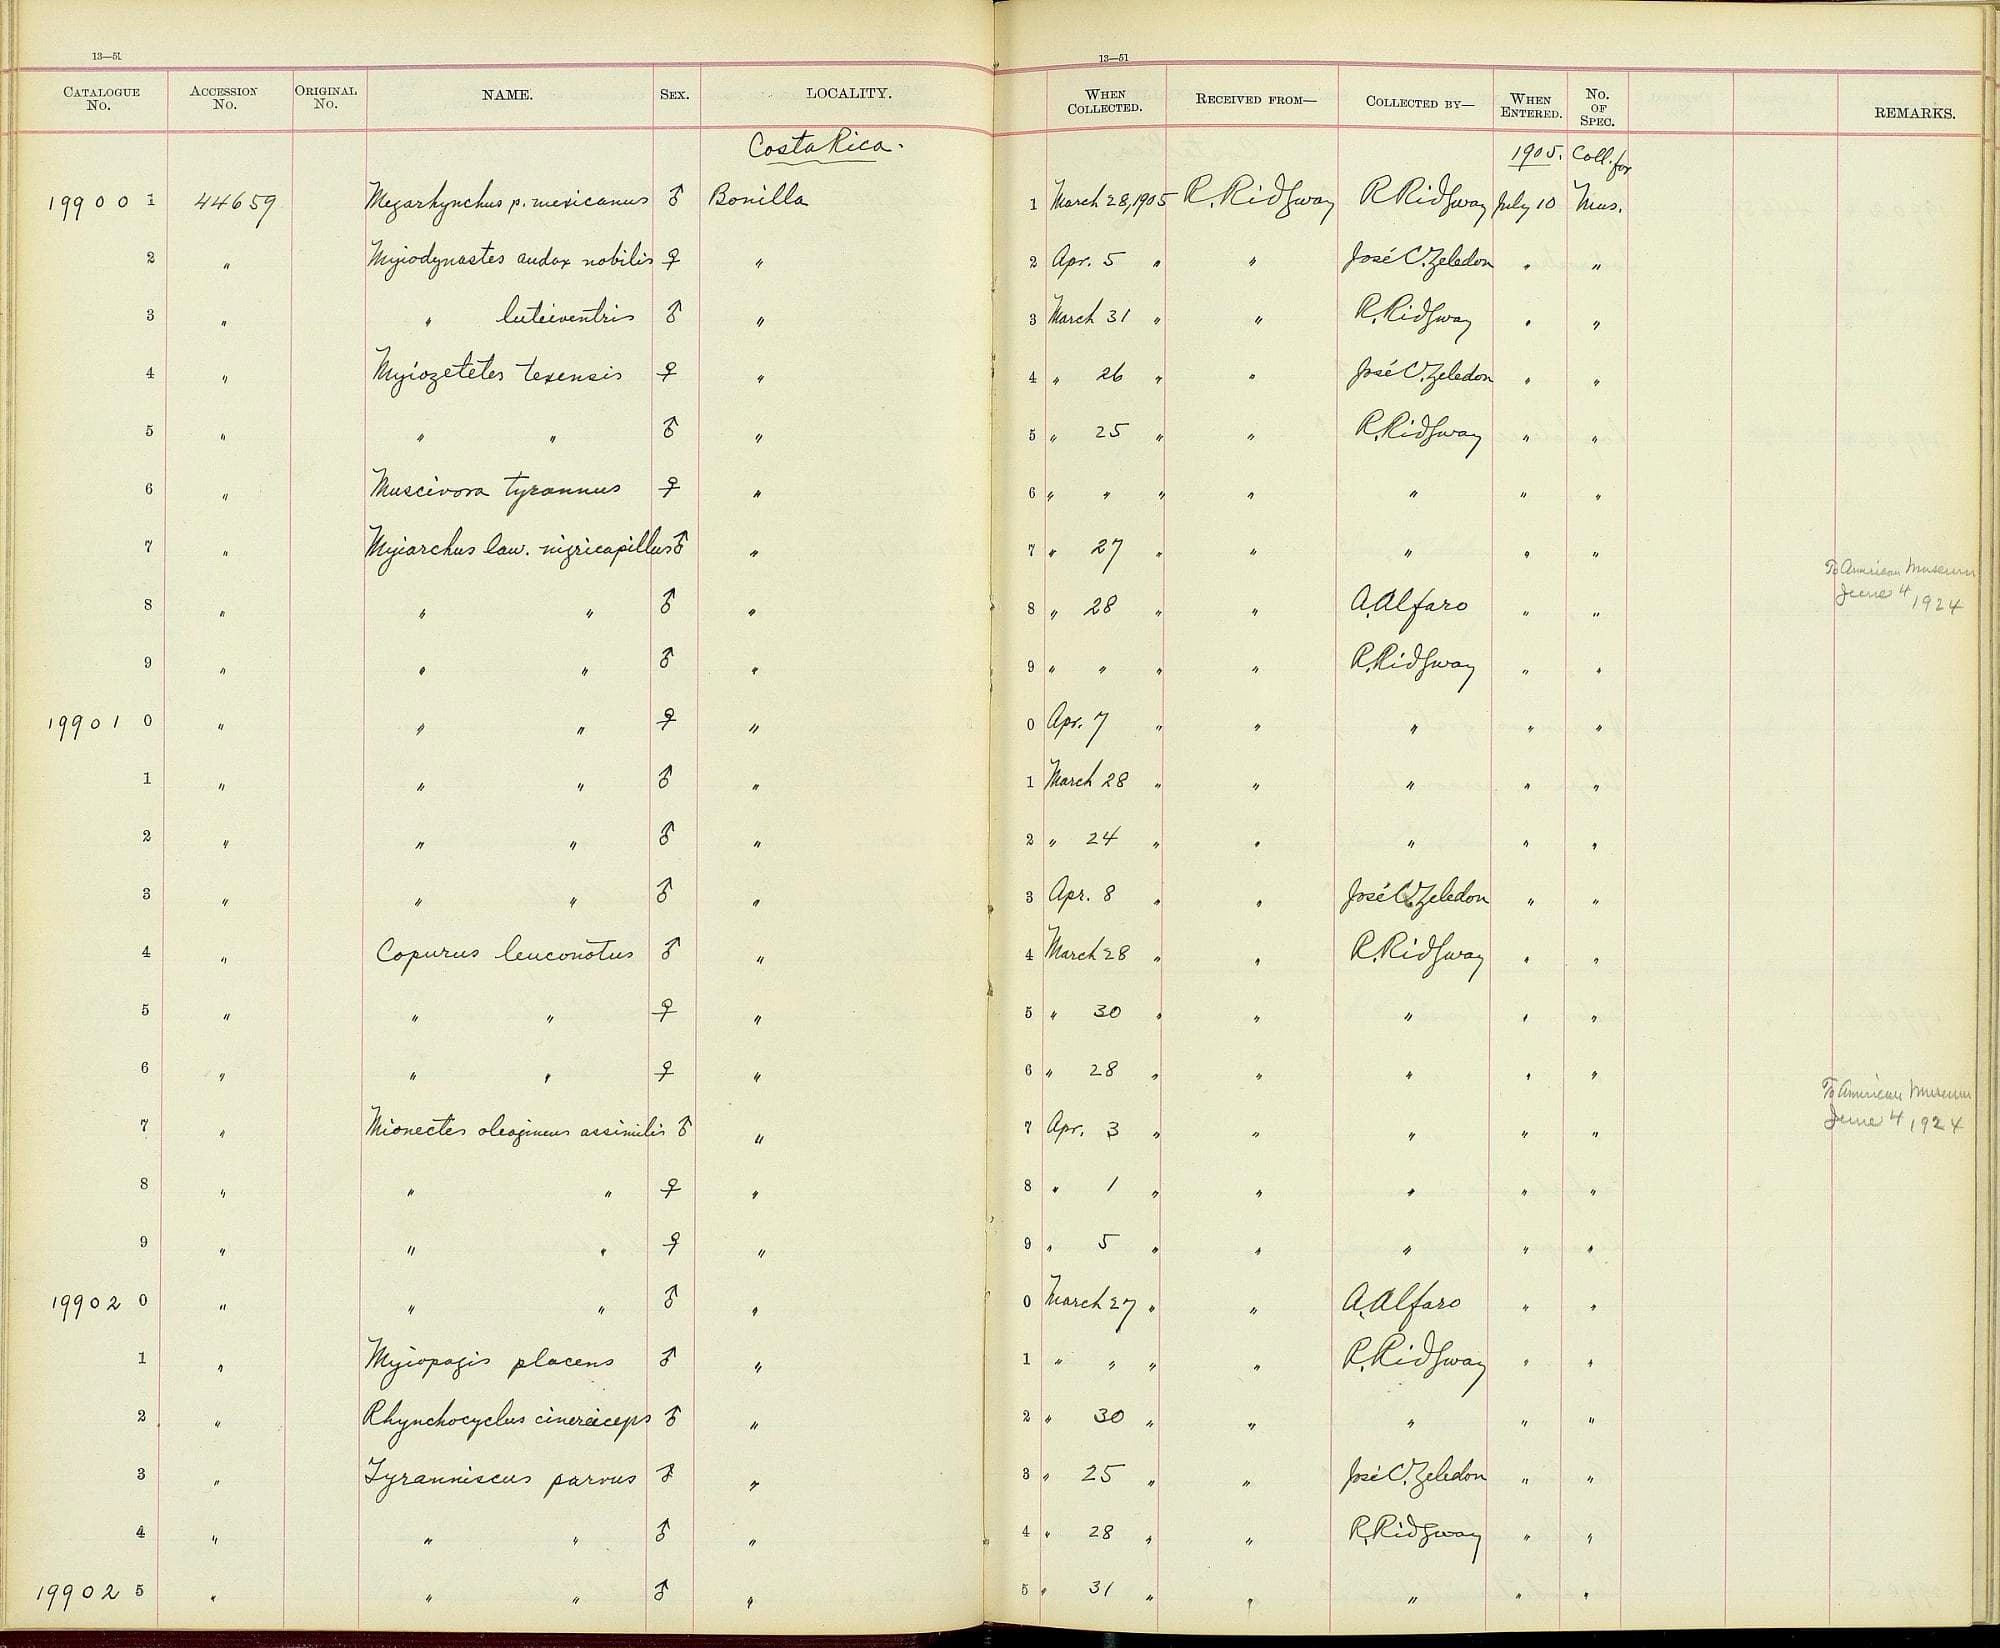 13—51
13—51
CATALOGUE No. ACCESSION No. ORIGINAL No. NAME. SEX. LOCALITY. WHEN COLLECTED. RECEIVED FROM— COLLECTED BY— WHEN ENTERED. No. OF SPEC. REMARKS.
Costa Rica. 1905. Coll. for
19900 1 44659 Megarhynchus p. mexicanus ♂ Bonilla 1 March 28, 1905 R. Ridgway R Ridgway July 10 Mus.
2 " Myiodynastes audax nobilis ♀ " 2 Apr. 5 " " José C. Zeledon " "
3 " " luteiventris ♂ " 3 March 31 " " R. Ridgway " "
4 " Myiozetetes texensis ♀ " 4 " 26 " " José C. Zeledon " "
5 " " " ♂ " 5 " 25 " " R. Ridgway " "
6 " Muscivora tyrannus ♀ " 6 " " " " " " "
7 " Myiarchus law. nigricapillus ♂ " 7 " 27 " " " " "
8 " " " ♂ " 8 " 28 " " A. Alfaro " " To American Museum June 4 1924
9 " " " ♂ " 9 " " " " R. Ridgway " "
19901 0 " " " ♀ " 0 Apr. 7 " " " " "
1 " " " ♂ " 1 March 28 " " " " "
2 " " " ♂ " 2 " 24 " " " " "
3 " " " ♂ " 3 Apr. 8 " " José C. Zeledon " "
4 " Copurus leuconotus ♂ " 4 March 28 " " R. Ridgway " "
5 " " " ♀ " 5 " 30 " " " " "
6 " " " ♀ " 6 " 28 " " " " "
7 " Mionectes oleagineus assimilis ♂ " 7 Apr. 3 " " " " " To American Museum June 4 1924
8 " " " ♀ " 8 " 1 " " " " "
9 " " " ♀ " 9 " 5 " " " " "
19902 0 " " " ♂ " 0 March 27 " " A. Alfaro " "
1 " Myiopagis placens ♂ " 1 " " " " R. Ridgway " "
2 " Rhynchocyclus cinereiceps ♂ " 2 " 30 " " " " "
3 " Tyranniscus parvus ♂ " 3 " 25 " " José C. Zeledon " "
4 " " " ♂ " 4 " 28 " " R. Ridgway " "
19902 5 " " " ♂ " 5 " 31 " " " " "